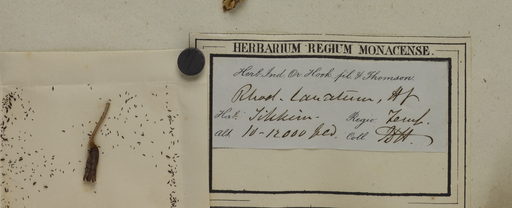 HERBARIUM REGIUM MONACENSE.
Herb. Ind. Or. Hook. fil. & Thomson.
Rhod. lanatum, Hf
Hab. Sikkim. Regio Temp.
alt. 10-12000 ped. Coll. JDH.